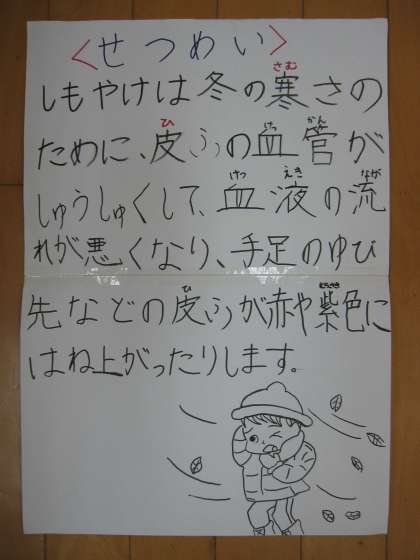 <せつめい>
さむ
しもやけは冬の寒さの
ひ けっ かん
ために、皮ふの血管が
けつ えき なが
しゅうしゅくして、血液の流
れが悪くなり、手足のゆび
ひ むらさき
先などの皮ふが赤や紫色に
はね上がったりします。